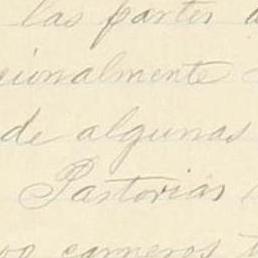 las partes
cionalmente
de algunas
Pastorias
carneros